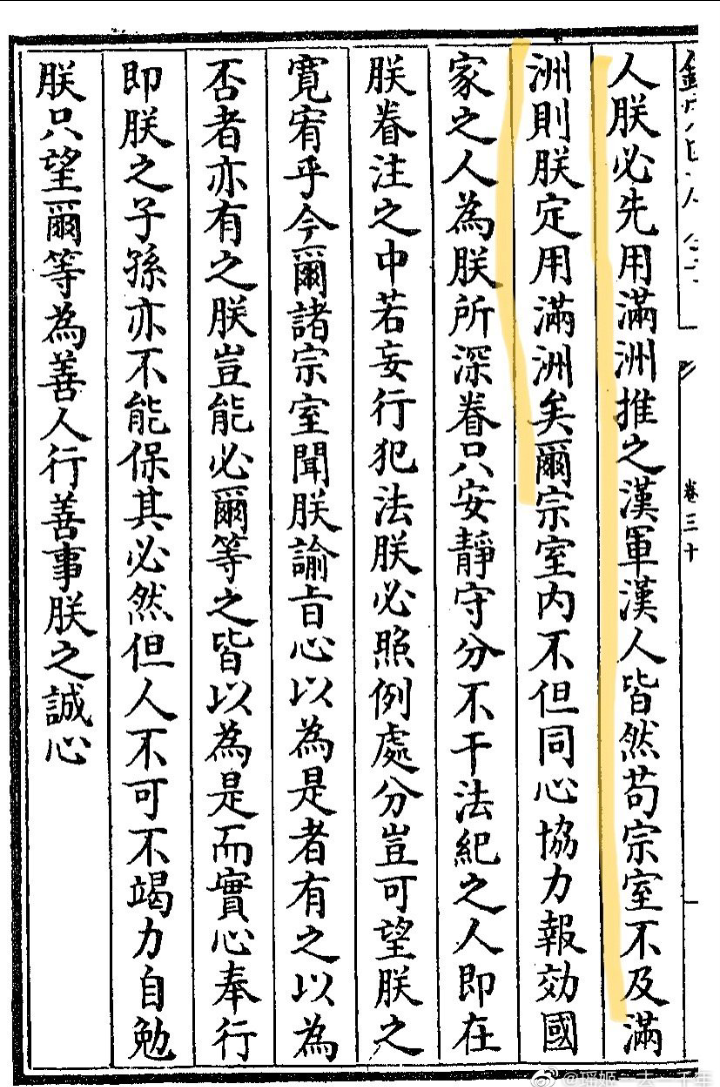 卷三十
人朕必先用滿洲推之漢軍漢人皆然苟宗室不及滿
洲則朕定用滿洲矣爾宗室內不但同心協力報効國
家之人為朕所深眷只安靜守分不干法紀之人即在
朕眷注之中若妄行犯法朕必照例處分豈可望朕之
寛宥乎今爾諸宗室聞朕諭旨心以為是者有之以為
否者亦有之朕豈能必爾等之皆以為是而實心奉行
即朕之子孫亦不能保其必然但人不可不竭力自勉
朕只望爾等為善人行善事朕之誠心